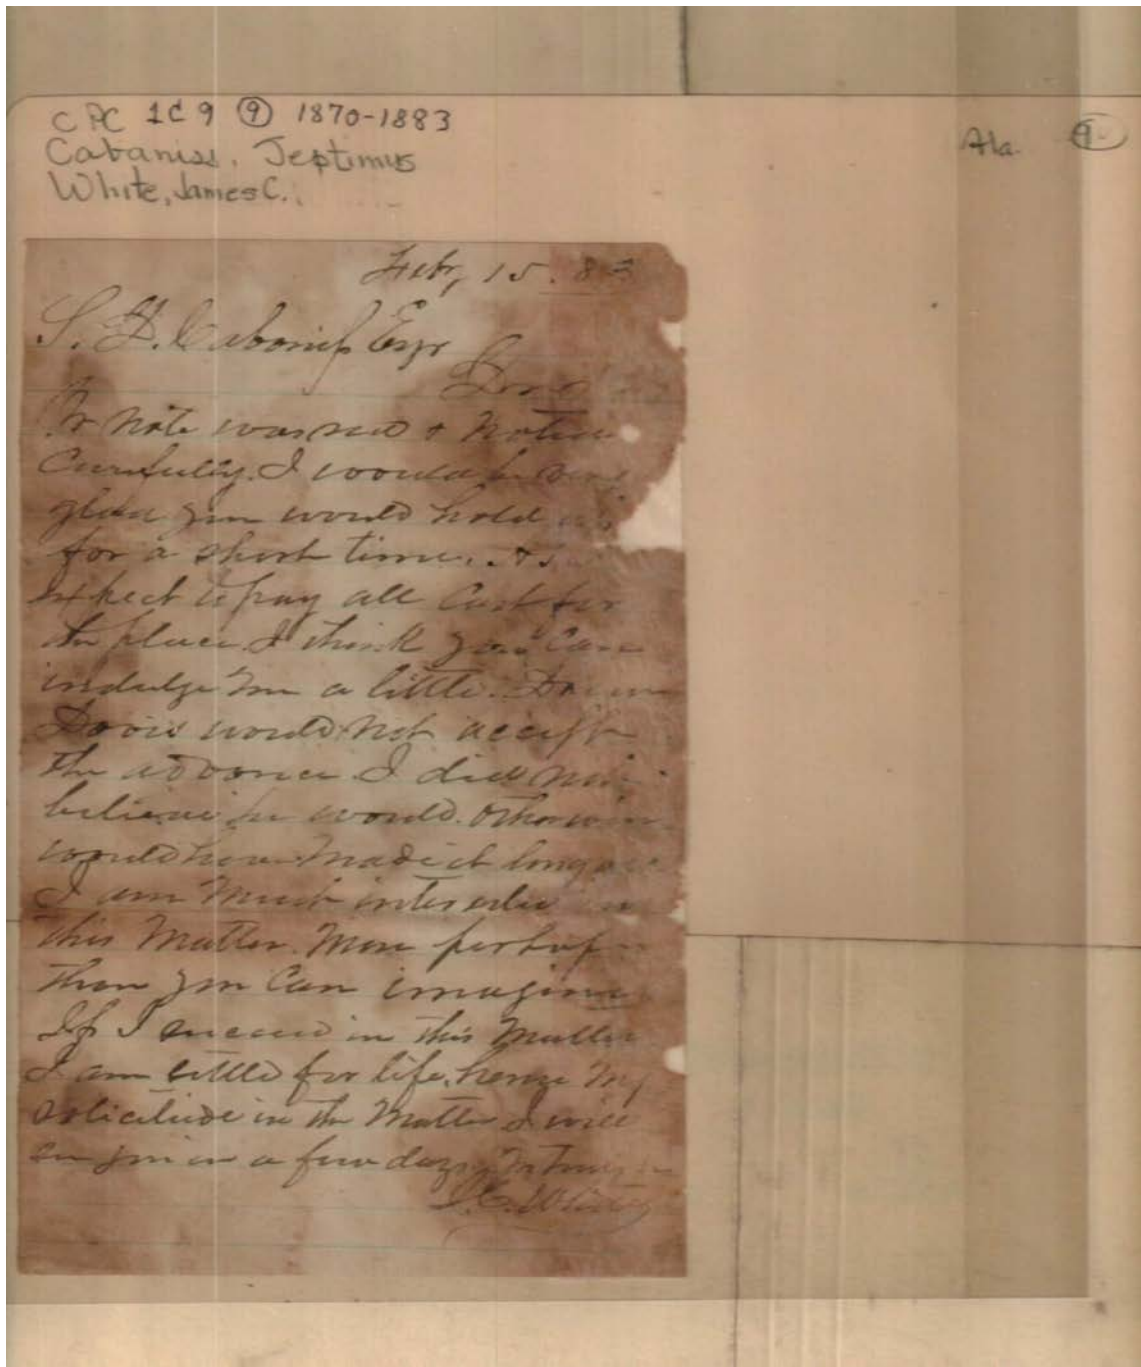 CPC 1C9 ⑨ 1870-1883
Cabaniss, Septimus
White, James C.
Ala. ⑨
Feby, 15. 83
S. D. Cabaniss Esqr
Dear
Yr note was recd & noticed
Carefully. I would be very
glad you would hold
for a short time. As
expect to pay all Cost for
the place I think you Can
indulge me a little.
Davis would not accept
the advance I did not
believe he would. Otherwise
would have made it long
I am much interested in
this Matter. More perhaps
than you Can imagine
If I succeed in this Matter
I am settled for life. hence my
solicitude in the Matter I will
see you in a few days. Yrs Truly
J. C. White